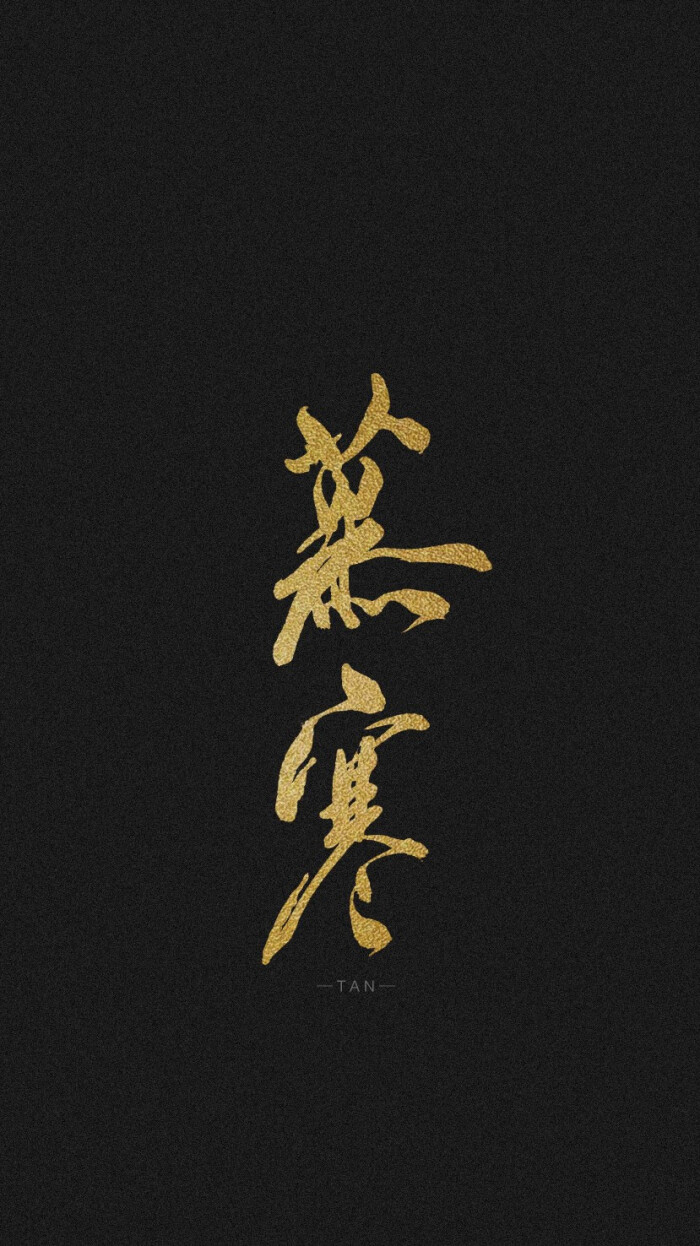 慕寒
—TAN—